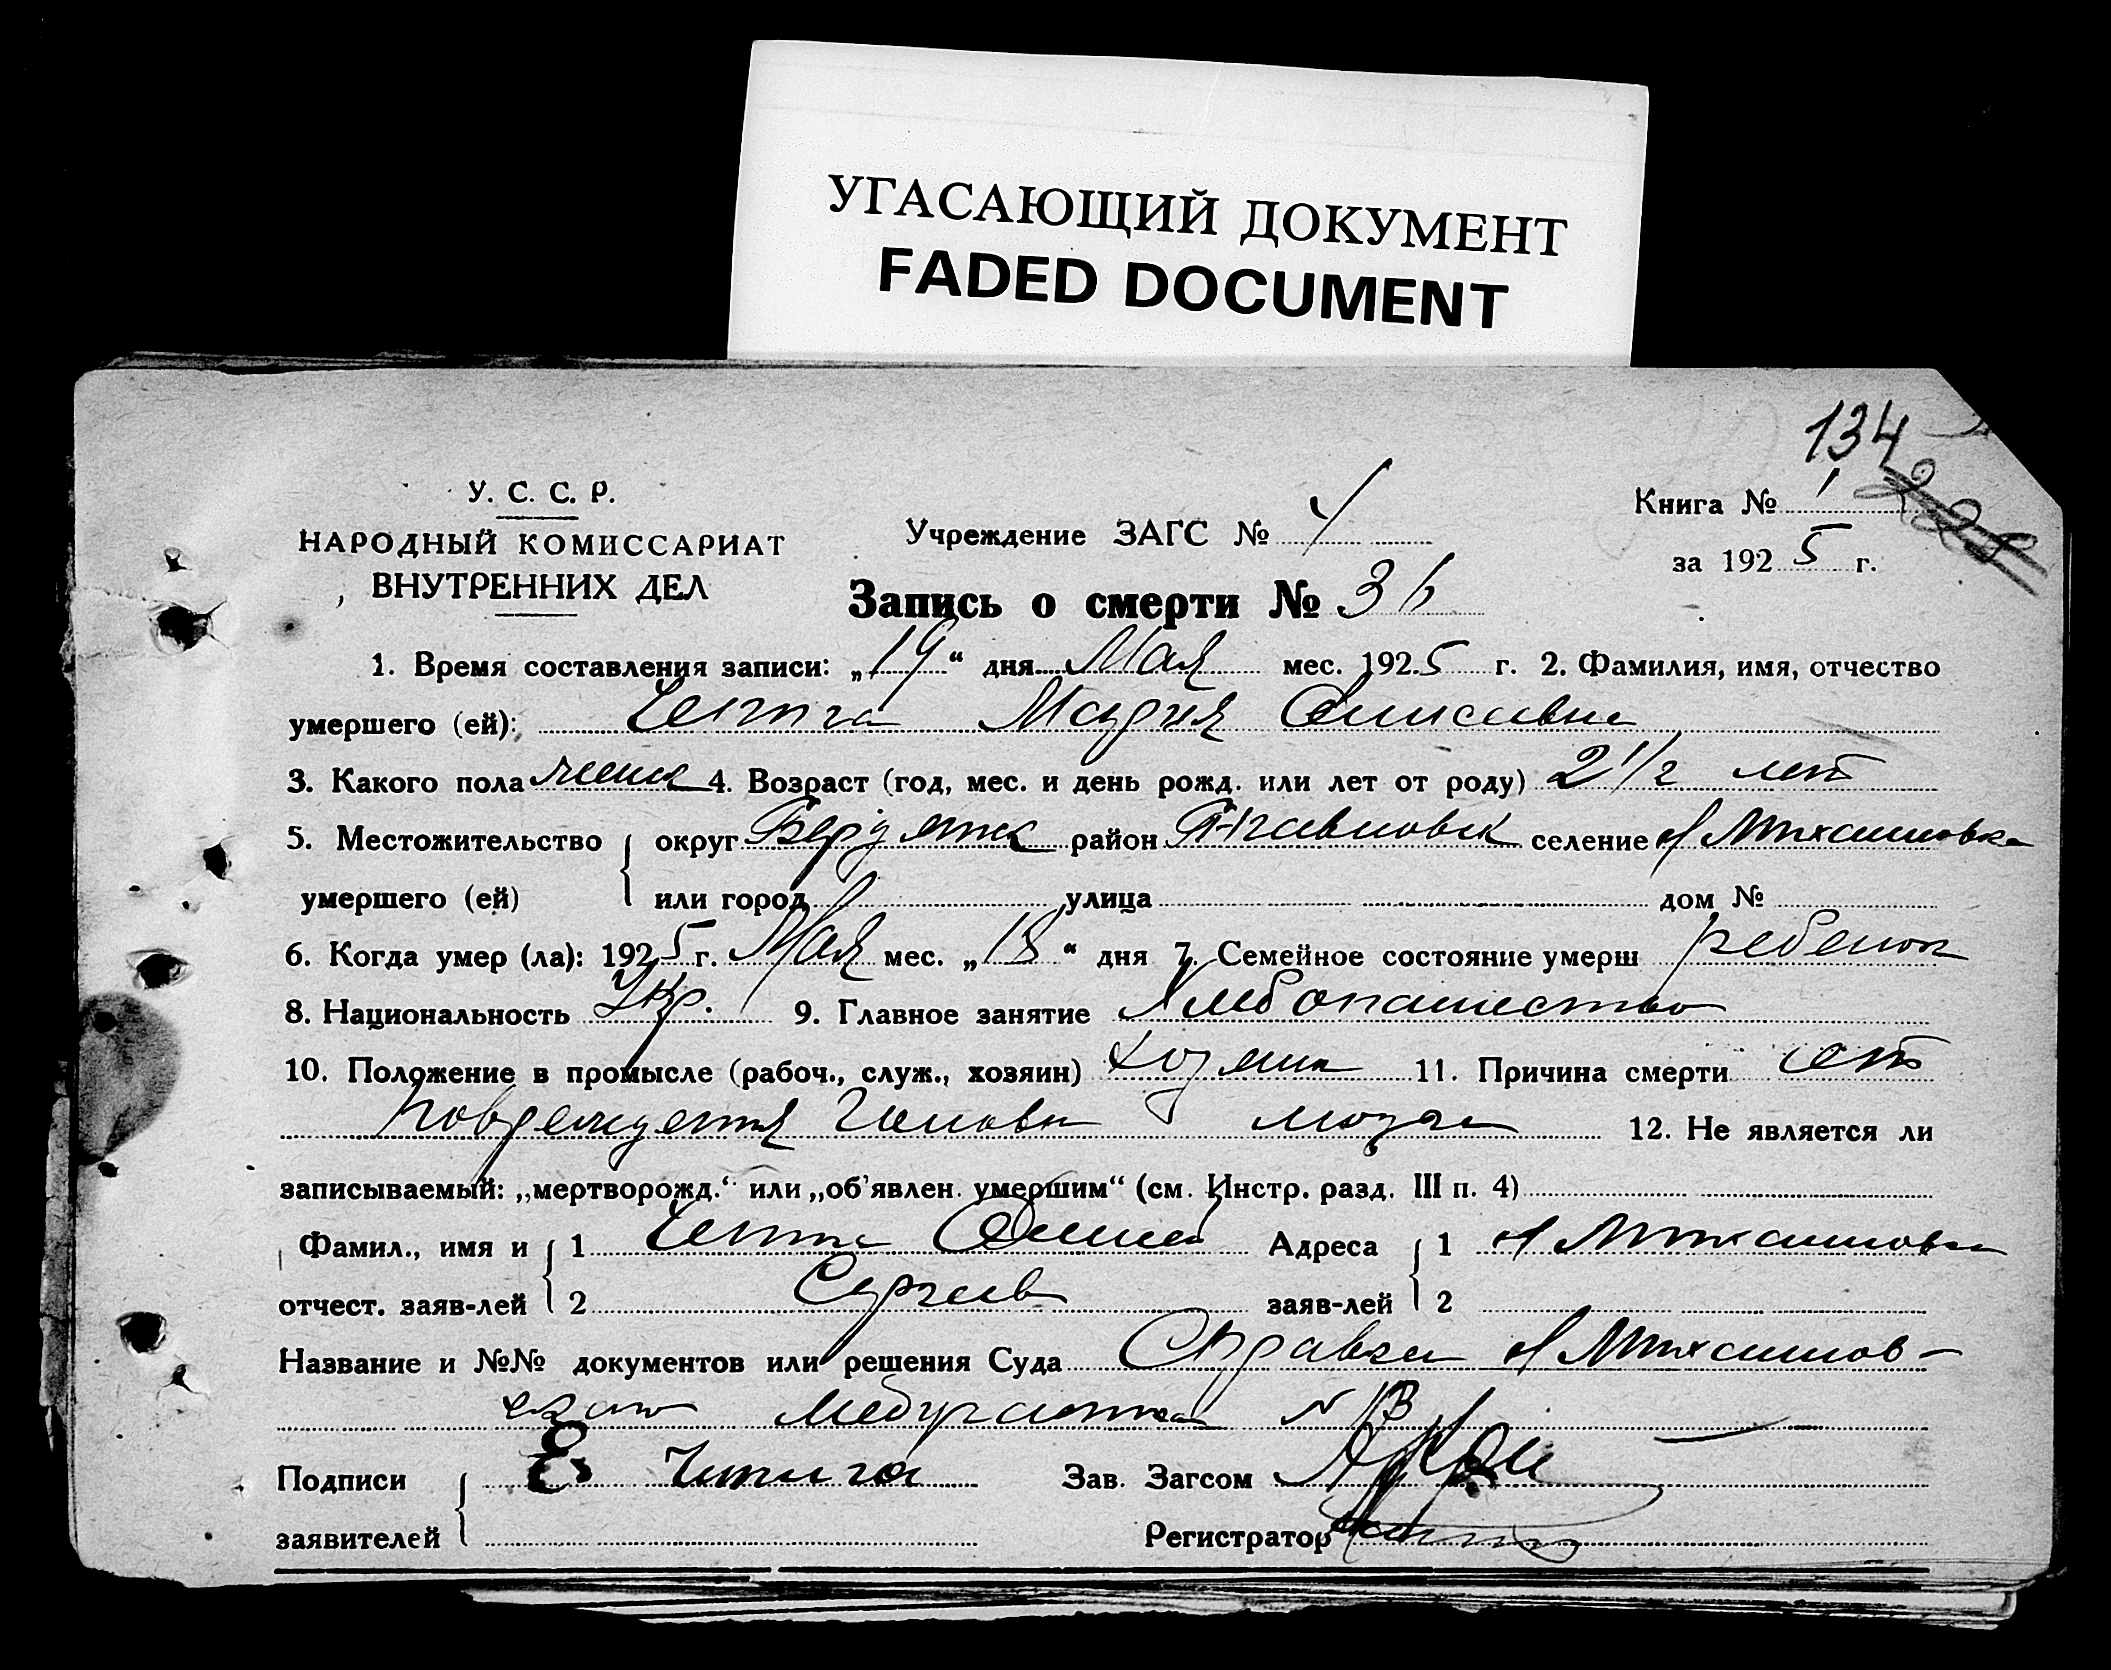 УГАСАЮЩИЙ ДОКУМЕНТ
FADED DOCUMENT
134
У. С. С. Р.
НАРОДНЫЙ КОМИССАРИАТ
ВНУТРЕННИХ ДЕЛ
Учреждение ЗАГС №
Книга № 1
за 1925 г.
Запись о смерти № 36
1. Время составления записи: „19“ дня Мая мес. 1925 г. 2. Фамилия, имя, отчество
умершего (ей): Мария
3. Какого пола женск 4. Возраст (год, мес. и день рожд. или лет от роду) 2 1/2 лет
5. Местожительство округ Бердянск район селение
умершего (ей) или город улица дом №
6. Когда умер (ла): 1925 г. Мая мес. „18“ дня 7. Семейное состояние умерш ребенок
8. Национальность Укр. 9. Главное занятие Хлебопашество
10. Положение в промысле (рабоч., служ., хозяин) хозяин 11. Причина смерти от
повреждения Головн мозга 12. Не является ли
записываемый: „мертворожд.“ или „об'явлен. умершим“ (см. Инстр. разд. III п. 4)
Фамил., имя и 1 Адреса 1
отчест. заяв-лей 2 Сергеев заяв-лей 2
Название и №№ документов или решения Суда Справка
Подписи Зав. Загсом
заявителей Регистратор